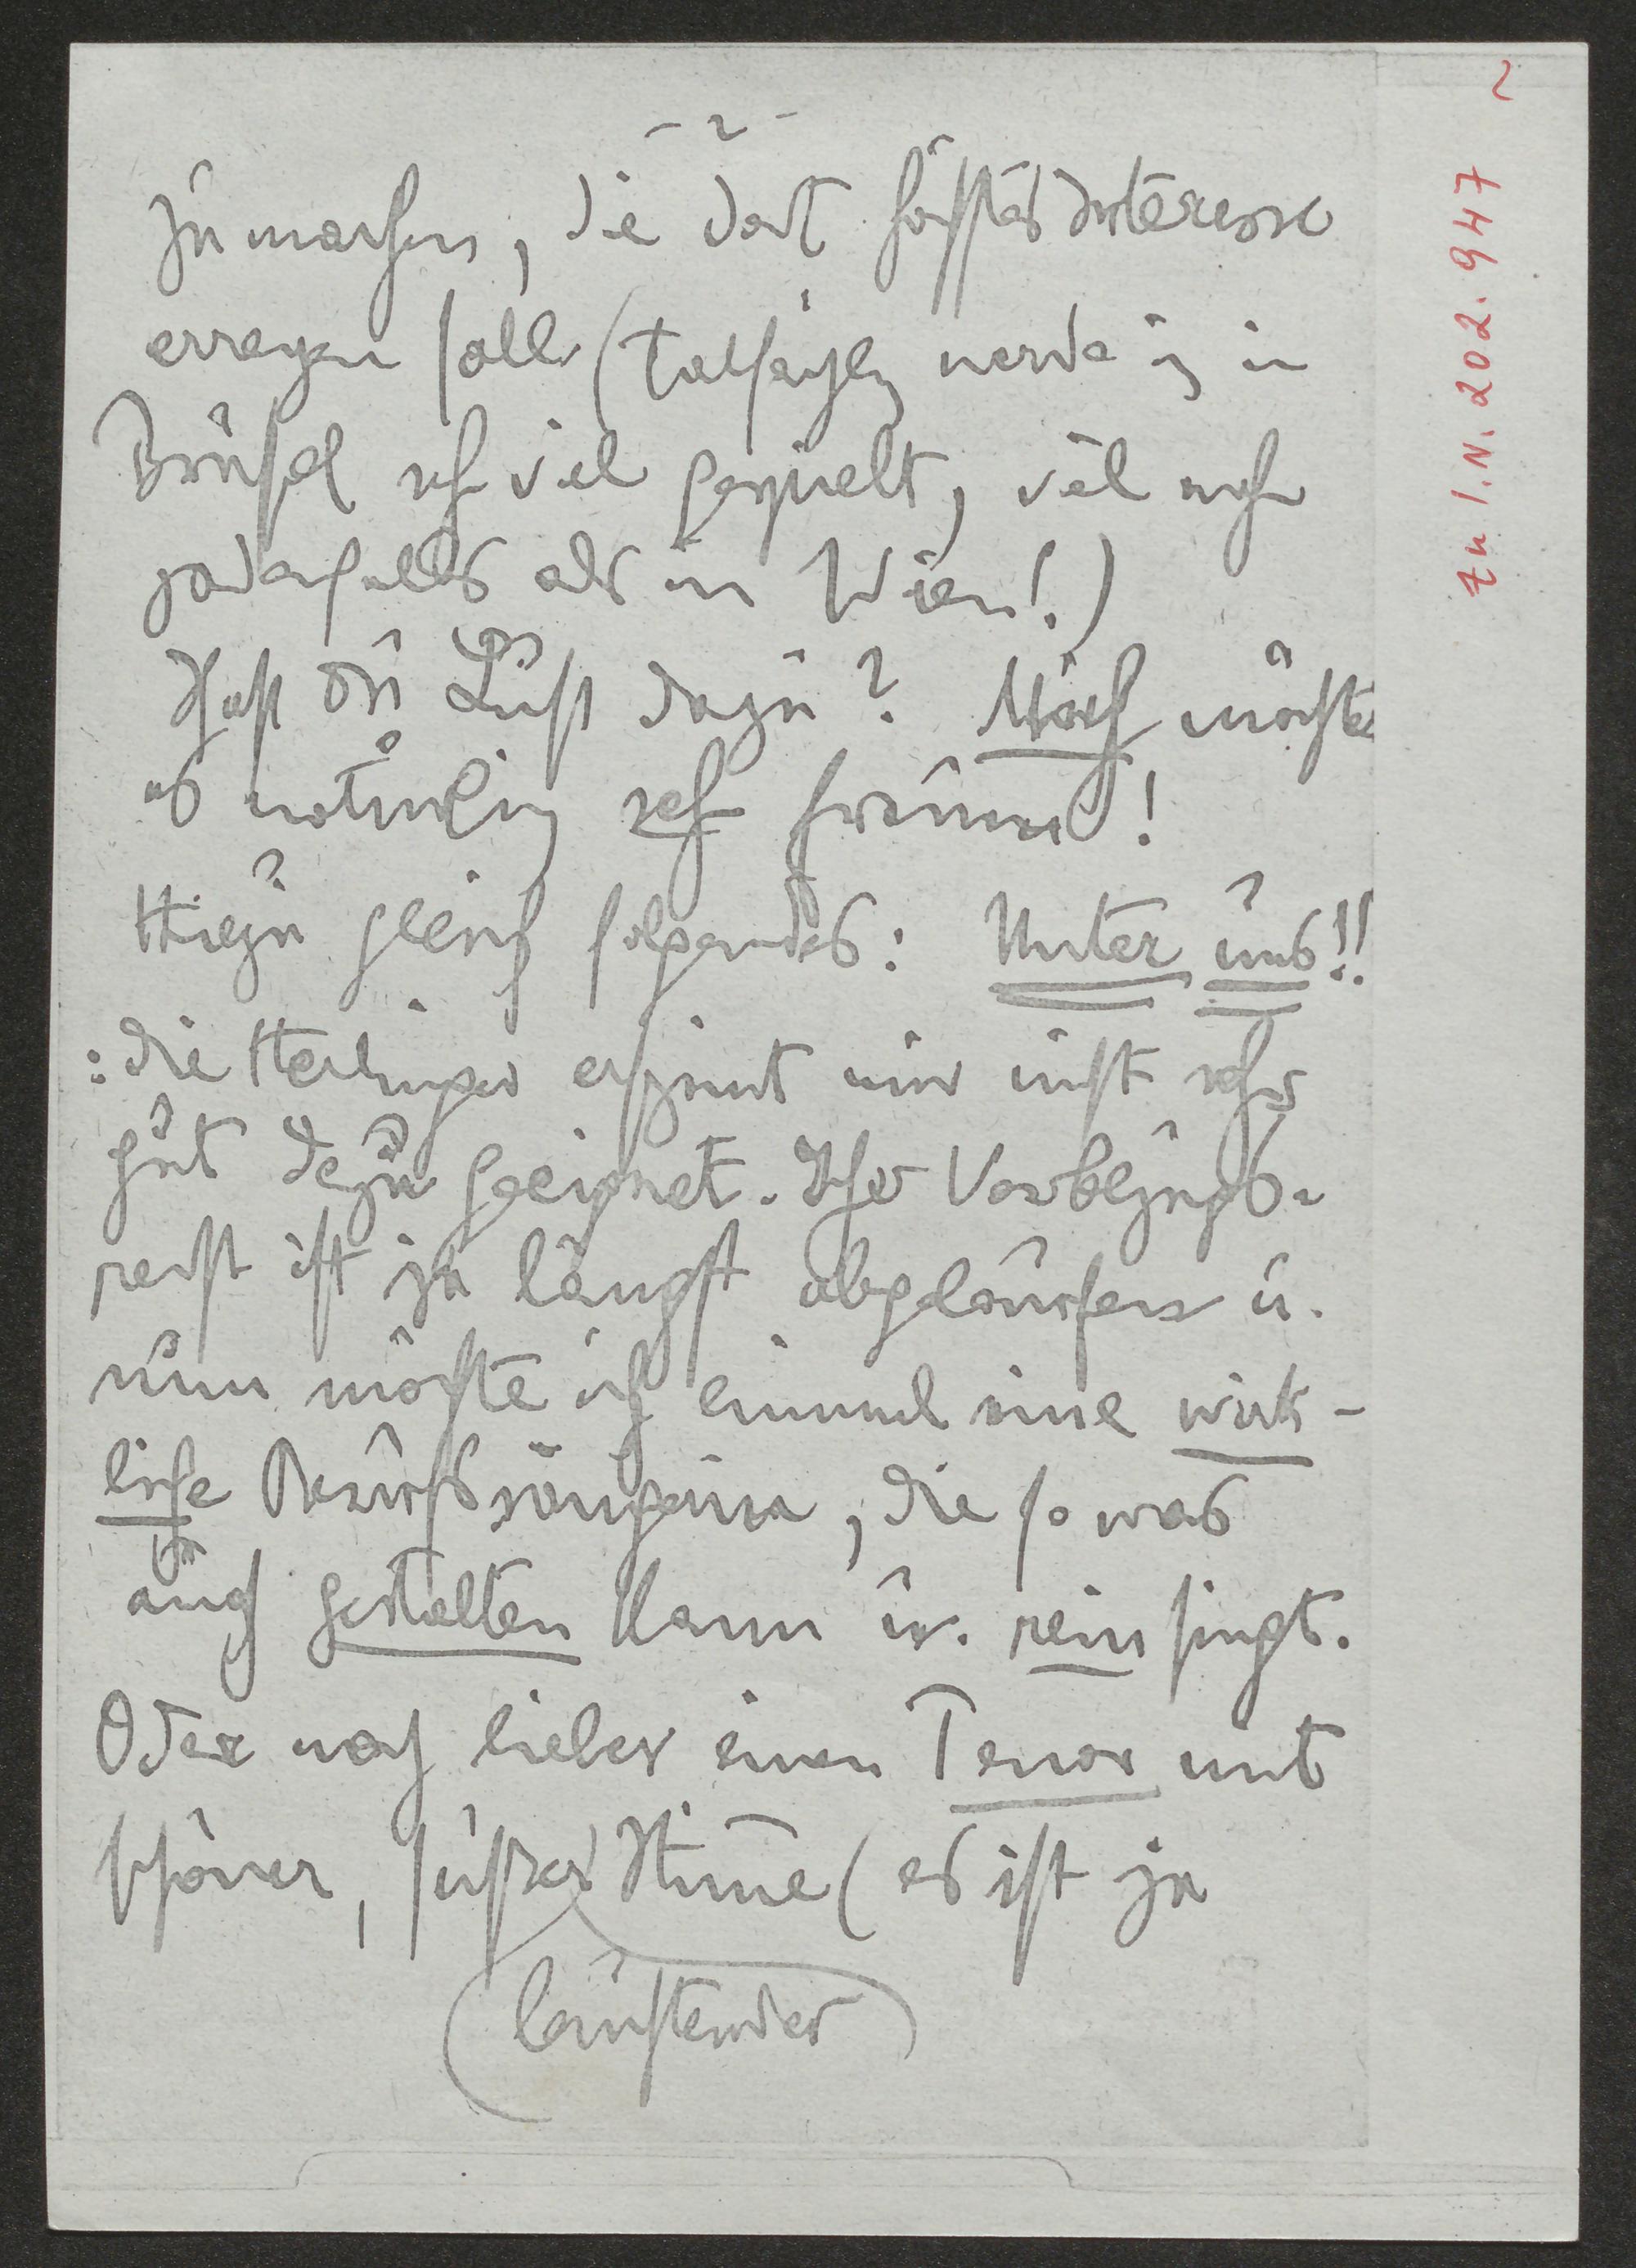 - 2 -
zu machen, die dort höchstes Interesse
erregen soll (tatsächlich werde ich in
Brüssel sehr viel gespielt, viel mehr
jedenfalls als in Wien!)
Hast Du Lust dazu? Mich möchte
es natürlich sehr freuen!
Hiezu gleich folgendes: Unter uns!!
: die Herlinger erscheint mir nicht sehr
gut dazu geeignet. Ihr Vorbezugs-
recht ist ja längst abgelaufen u.
nun möchte ich einmal eine wirk-
liche Berufssängerin, die so was
auch gestalten kann u. rein singt.
Oder noch lieber einen Tenor mit
schöner, süßer Stimme (es ist ja
(leuchtender)
zu I.N. 202.947 2